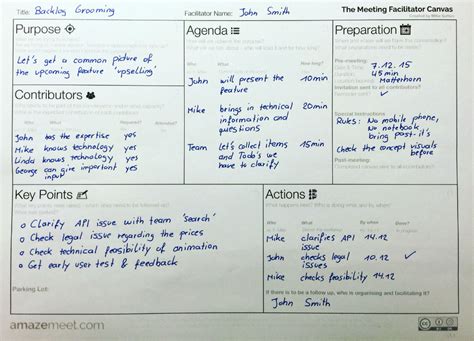 Title: Backlog Grooming
Facilitator Name: John Smith
The Meeting Facilitator Canvas
Created by Mike Sutton
Purpose
Let's get a common picture of
the upcoming feature 'upselling'
Contributors
Who
What
Required?
Attended?
John has the expertise yes
Mike knows technology yes
Linda knows technology yes
George can give important yes
input
Agenda
Who
What
How long
John will present the 10min
feature
Mike brings in technical 20min
information and
questions
Team Let's collect items 15min
and Todo's we
have to clarify
Preparation
Pre-meeting
Date & Time 7.12.15
Duration 45min
Location Matterhorn
Invitation sent to all contributors?
Reminder sent? ✓
Special Instructions
Rules: No mobile phone,
No notebook,
bring post-it's
Check the concept visuals
before
Post-meeting
Key Points
o Clarify API issue with team 'search'
o Check legal issue regarding the prices
o Check technical feasibility of animation
o Get early user test & feedback
Parking Lot:
Actions
Who
What
By when
Done?
Mike clarifies API 14.12
issue
John checks legal 10.12 ✓
issues
Mike checks feasibility 14.12
If there is to be a follow up, who is organising and facilitating it?
John Smith
amazemeet.com